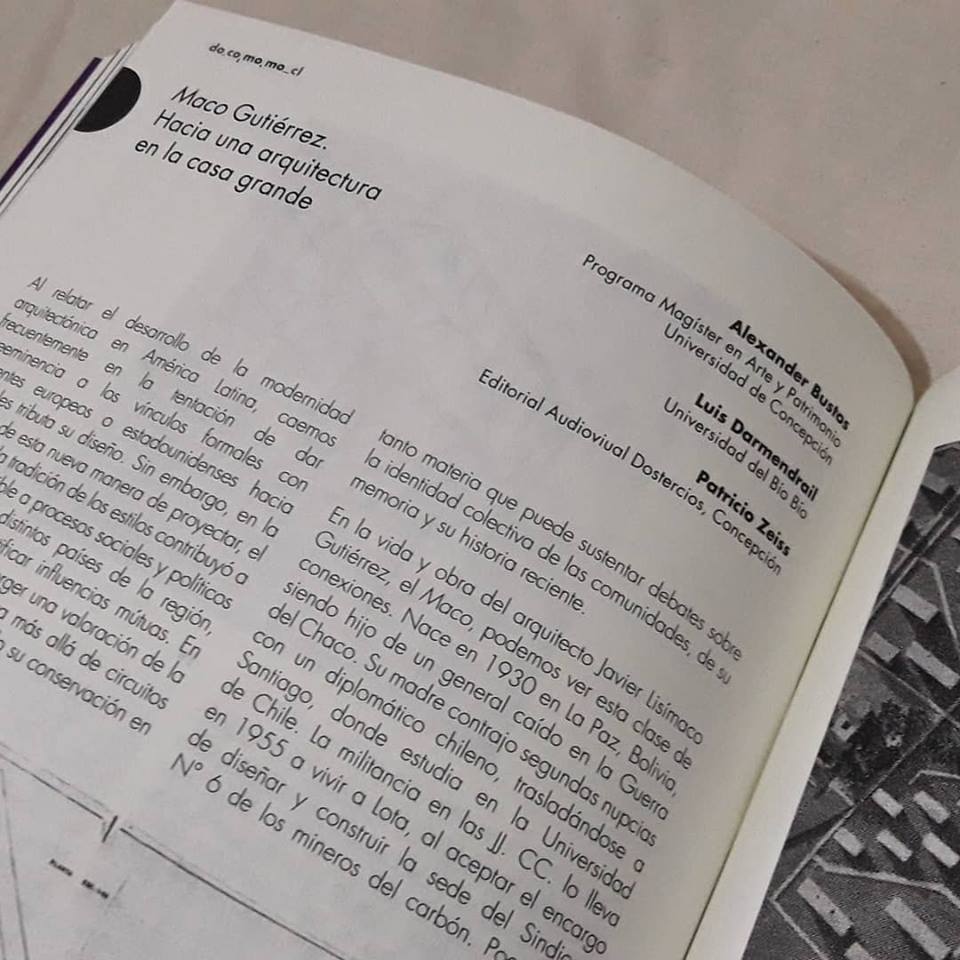 do,co,mo,mo_cl
Maco Gutiérrez.
Hacia una arquitectura
en la casa grande
Alexander Bustos
Programa Magíster en Arte y Patrimonio
Universidad de Concepción
Luis Darmendrail
Universidad del Bío Bío
Patricio Zeiss
Editorial Audioviual Dostercios, Concepción
Al relatar el desarrollo de la modernidad
arquitectónica en América Latina, caemos
frecuentemente en la tentación de dar
a los vínculos formales con
europeos o estadounidenses hacia
tributa su diseño. Sin embargo, en la
de esta nueva manera de proyectar, el
tradición de los estilos contribuyó a
a procesos sociales y políticos
distintos países de la región,
influencias mútuas. En
una valoración de la
más allá de circuitos
su conservación en
tanto materia que puede sustentar debates sobre
la identidad colectiva de las comunidades, de su
memoria y su historia reciente.
En la vida y obra del arquitecto Javier Lisímaco
Gutiérrez, el Maco, podemos ver esta clase de
conexiones. Nace en 1930 en La Paz, Bolivia,
siendo hijo de un general caído en la Guerra
del Chaco. Su madre contrajo segundas nupcias
con un diplomático chileno, trasladándose a
Santiago, donde estudia en la Universidad
de Chile. La militancia en las JJ. CC. lo lleva
en 1955 a vivir a Lota, al aceptar el encargo
de diseñar y construir la sede del Sindic
N° 6 de los mineros del carbón.